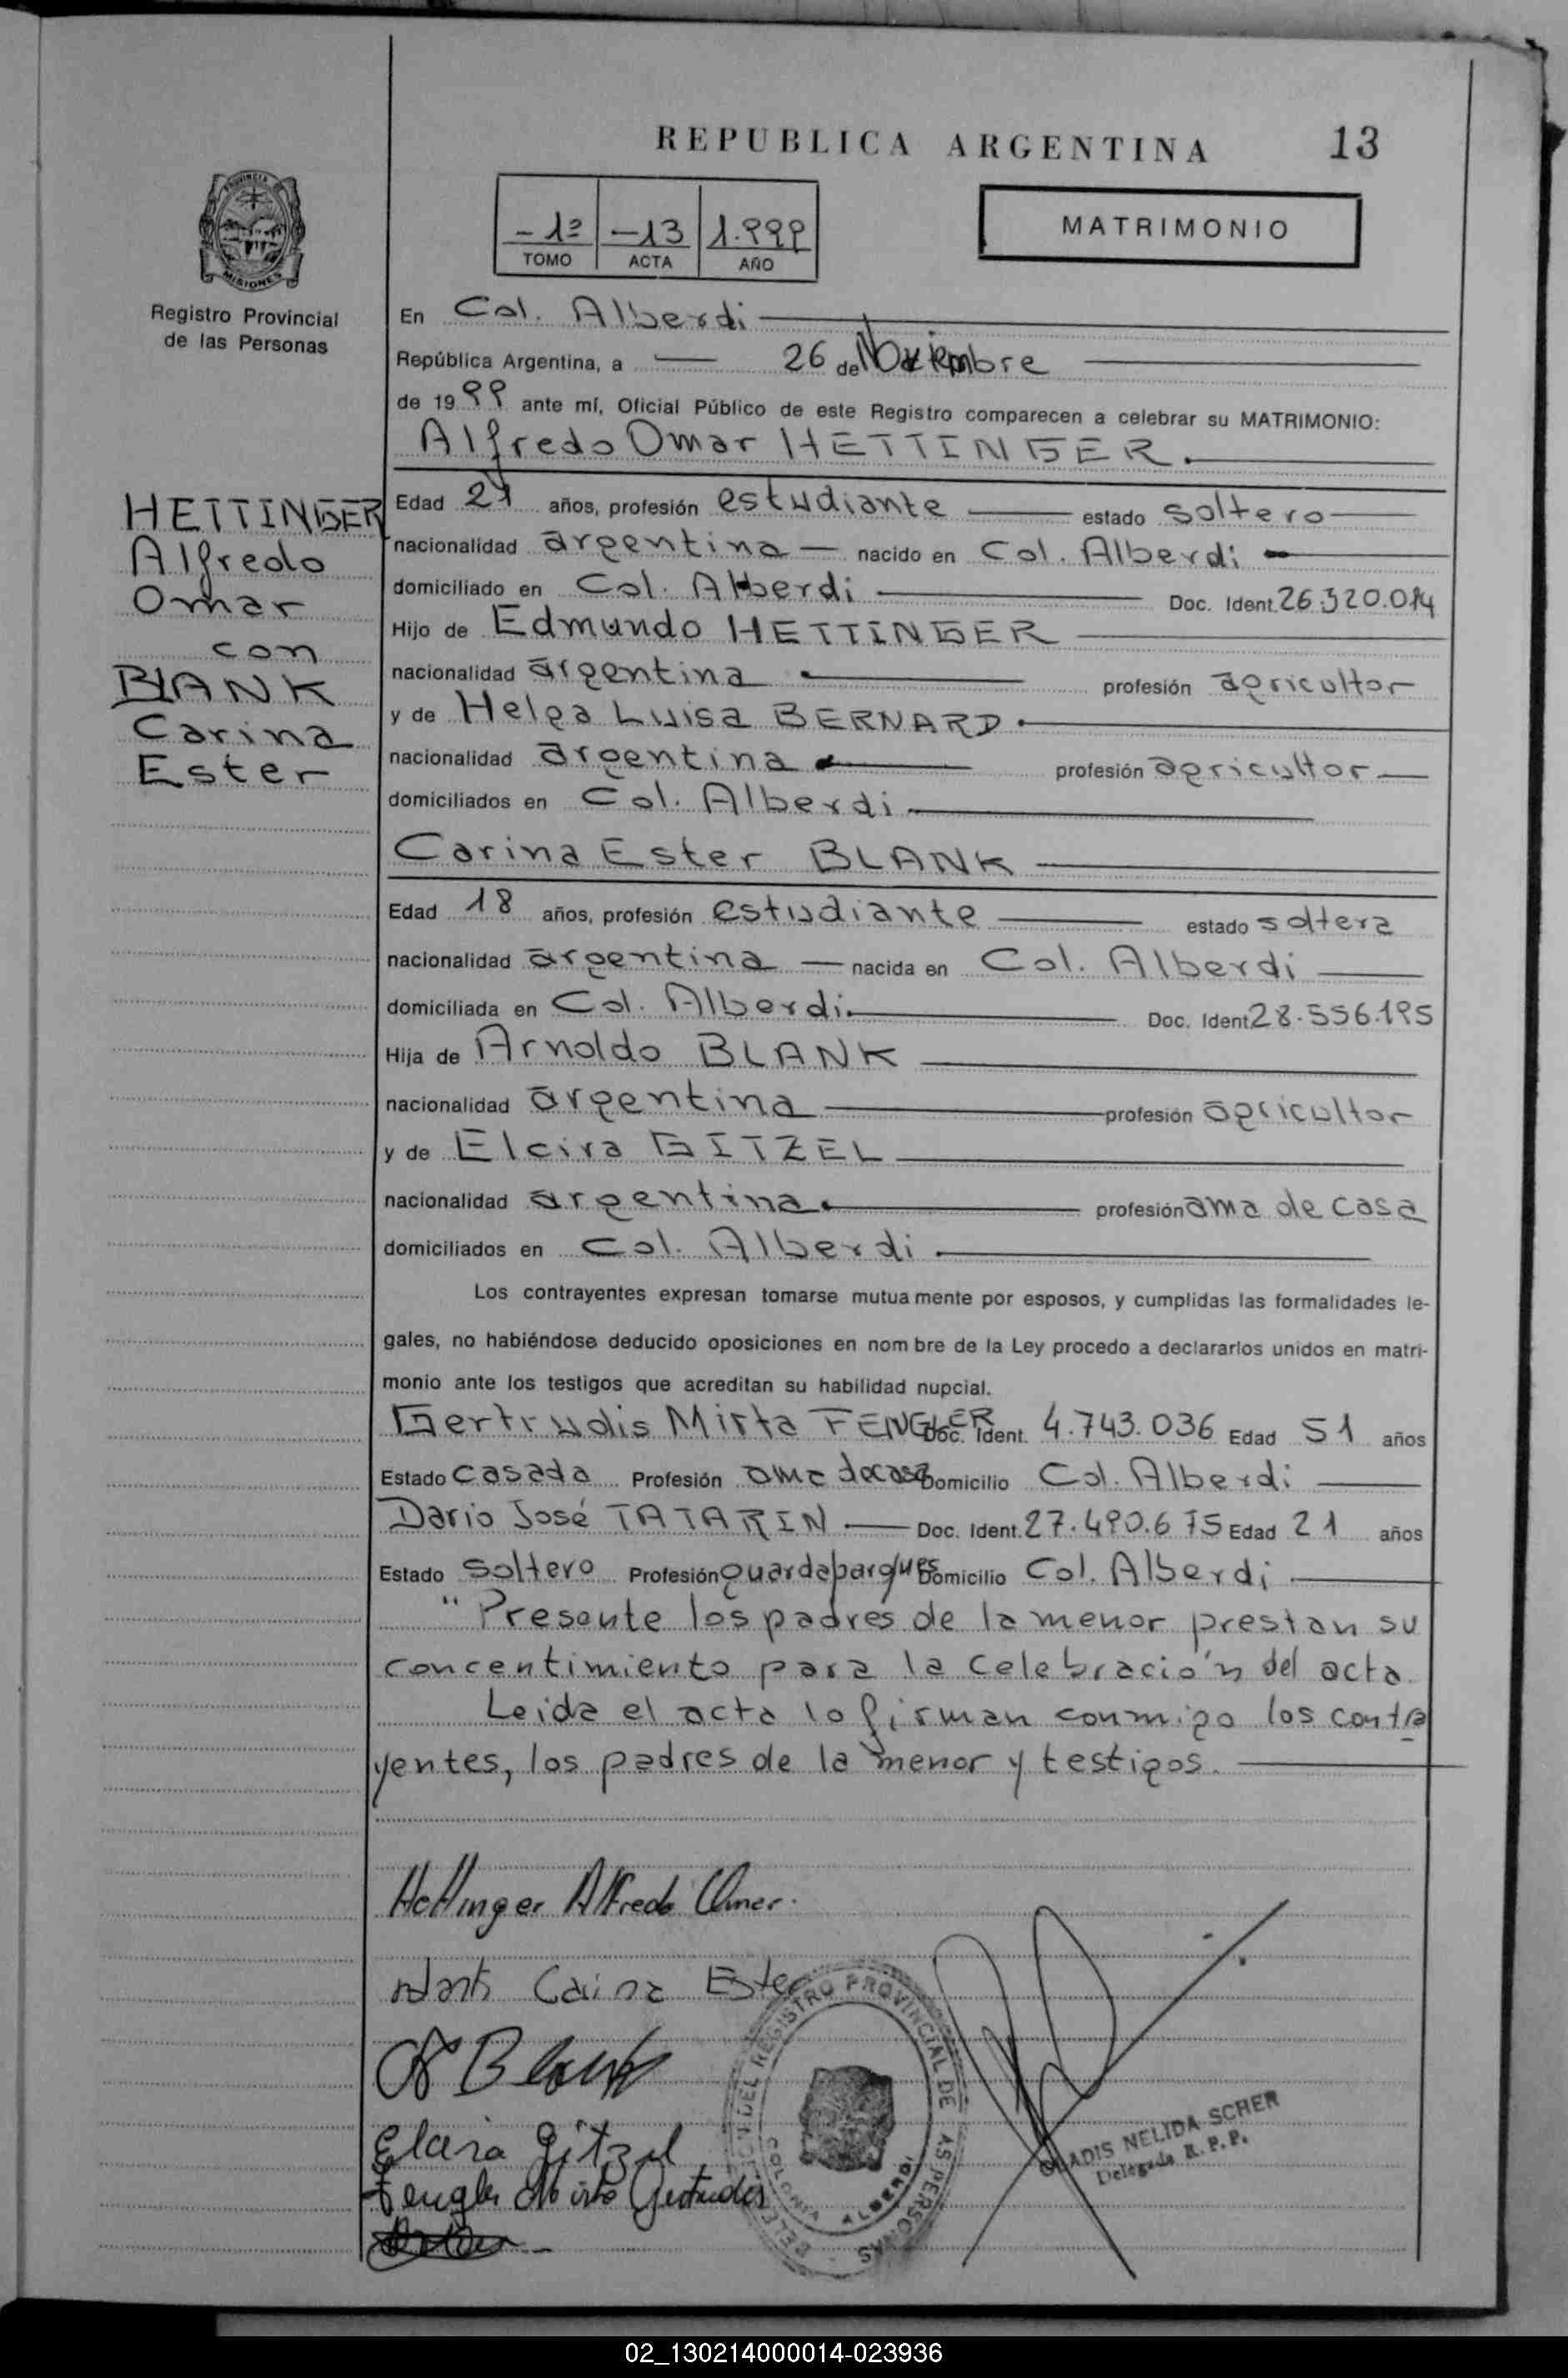 REPUBLICA ARGENTINA 13
PROVINCIA
MISIONES
Registro Provincial
de las Personas
- 1º -13 1.999
TOMO ACTA AÑO
MATRIMONIO
En Col. Alberdi
República Argentina, a 26 de Noviembre
de 1999 ante mí, Oficial Público de este Registro comparecen a celebrar su MATRIMONIO:
Alfredo Omar HETTINGER.
HETTINGER
Alfredo
Omar
con
BLANK
Carina
Ester
Edad 21 años, profesión estudiante estado soltero
nacionalidad argentina nacido en Col. Alberdi
domiciliado en Col. Alberdi Doc. Ident. 26.320.014
Hijo de Edmundo HETTINGER
nacionalidad argentina profesión agricultor
y de Helga Luisa BERNARD.
nacionalidad argentina profesión agricultor
domiciliados en Col. Alberdi
Carina Ester BLANK
Edad 18 años, profesión estudiante estado soltera
nacionalidad argentina nacida en Col. Alberdi
domiciliada en Col. Alberdi. Doc. Ident 28.556.195
Hija de Arnoldo BLANK
nacionalidad argentina profesión agricultor
y de Elcira GITZEL
nacionalidad argentina. profesión ama de casa
domiciliados en Col. Alberdi.
Los contrayentes expresan tomarse mutuamente por esposos, y cumplidas las formalidades le-
gales, no habiéndose deducido oposiciones en nombre de la Ley procedo a declararlos unidos en matri-
monio ante los testigos que acreditan su habilidad nupcial.
Gertrudis Mirta FENGLER Doc. Ident. 4.743.036 Edad 51 años
Estado casada Profesión ama de casa Domicilio Col. Alberdi
Dario José TATARIN Doc. Ident. 27.490.675 Edad 21 años
Estado soltero Profesión guardaparques Domicilio Col. Alberdi
" Presente los padres de la menor prestan su
concentimiento para la celebración del acta.
Leida el acta lo firman conmigo los contra
yentes, los padres de la menor y testigos.
Hettinger Alfredo Omar.
Carina Ester
Blank
Elcira Gitzel
Fengler Mirta Gertrudis
DEL REGISTRO PROVINCIAL DE LAS PERSONAS
COLONIA ALBERDI
GLADIS NELIDA SCHER
Delegada R. P. P.
02_130214000014-023936